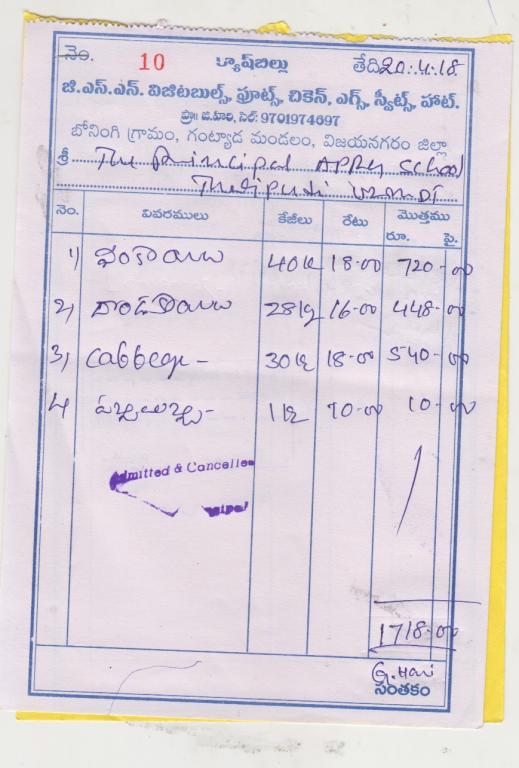 నెం. 10 క్యాష్‌బిల్లు తేది 20.4.18
జి.ఎస్.ఎన్. విజిటబుల్స్, ఫ్రూట్స్, చికెన్, ఎగ్స్, స్వీట్స్, హాట్.
ప్రొ॥ జి.హరి, సెల్: 9701974697
బోనంగి గ్రామం, గంట్యాడ మండలం, విజయనగరం జిల్లా
శ్రీ The Principal School
నెం. వివరములు కేజీలు రేటు మొత్తము
రూ. పై.
1) వంకాయలు 40 18-00 720-00
2) దొండకాయలు 28 16-00 448-00
3) 30 18-00 540-00
4 1 10-00 10-00
Admitted & Cancelled
1718-00
G. Hari
సంతకం